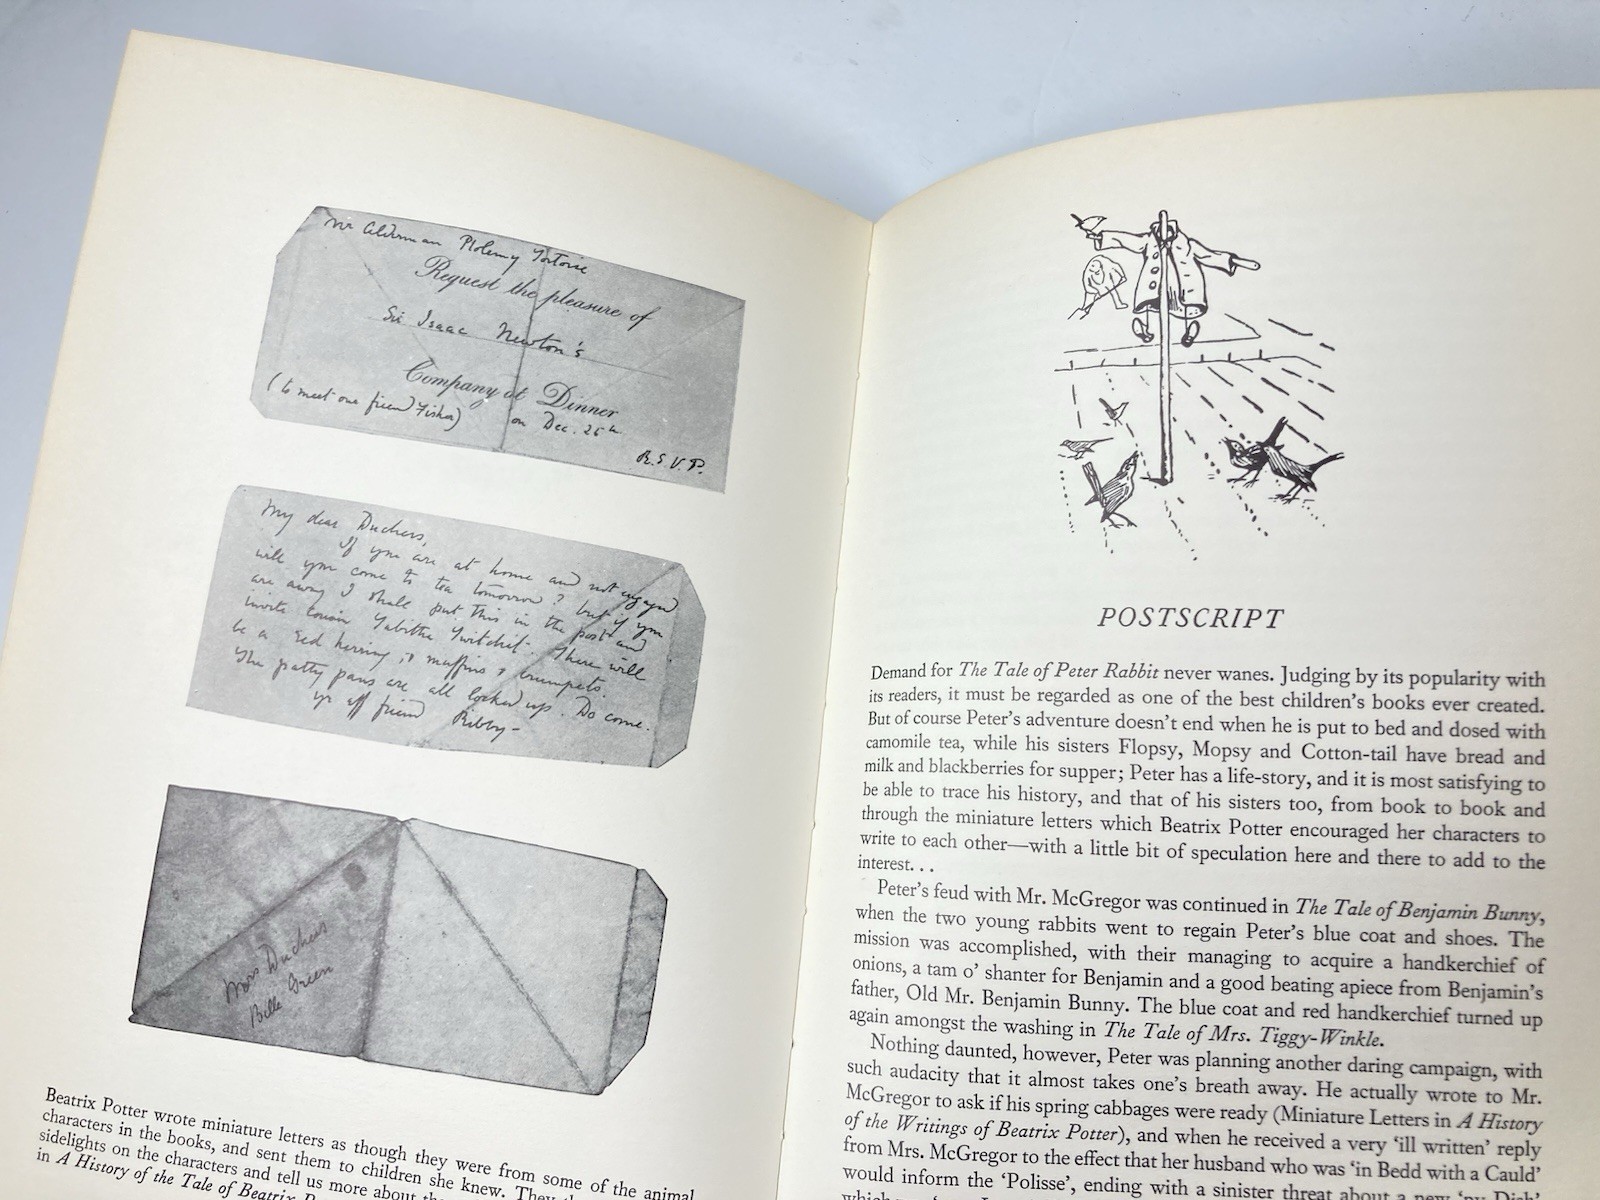 Mr Alderman Ptolemy Tortoise
Request the pleasure of
Sir Isaac Newton's
Company at Dinner
(to meet our friend Fisher) on Dec. 25th
R.S.V.P.
My dear Duchess,
If you are at home and not engaged
will you come to tea tomorrow? but if you
are away I shall put this in the post and
invite cousin Tabitha Twitchit. There will
be a red herring, & muffins & crumpets.
The patty pans are all locked up. Do come.
yr aff friend Ribby-
Mrs Duchess
Belle Green
Beatrix Potter wrote miniature letters as though they were from some of the animal
characters in the books, and sent them to children she knew. They
sidelights on the characters and tell us more about
in A History of the Tale of Beatrix
POSTSCRIPT
Demand for The Tale of Peter Rabbit never wanes. Judging by its popularity with
its readers, it must be regarded as one of the best children's books ever created.
But of course Peter's adventure doesn't end when he is put to bed and dosed with
camomile tea, while his sisters Flopsy, Mopsy and Cotton-tail have bread and
milk and blackberries for supper; Peter has a life-story, and it is most satisfying to
be able to trace his history, and that of his sisters too, from book to book and
through the miniature letters which Beatrix Potter encouraged her characters to
write to each other—with a little bit of speculation here and there to add to the
interest. . .
Peter's feud with Mr. McGregor was continued in The Tale of Benjamin Bunny,
when the two young rabbits went to regain Peter's blue coat and shoes. The
mission was accomplished, with their managing to acquire a handkerchief of
onions, a tam o' shanter for Benjamin and a good beating apiece from Benjamin's
father, Old Mr. Benjamin Bunny. The blue coat and red handkerchief turned up
again amongst the washing in The Tale of Mrs. Tiggy-Winkle.
Nothing daunted, however, Peter was planning another daring campaign, with
such audacity that it almost takes one's breath away. He actually wrote to Mr.
McGregor to ask if his spring cabbages were ready (Miniature Letters in A History
of the Writings of Beatrix Potter), and when he received a very 'ill written' reply
from Mrs. McGregor to the effect that her husband who was 'in Bedd with a Cauld'
would inform the 'Polisse', ending with a sinister threat about a new 'py Dish'